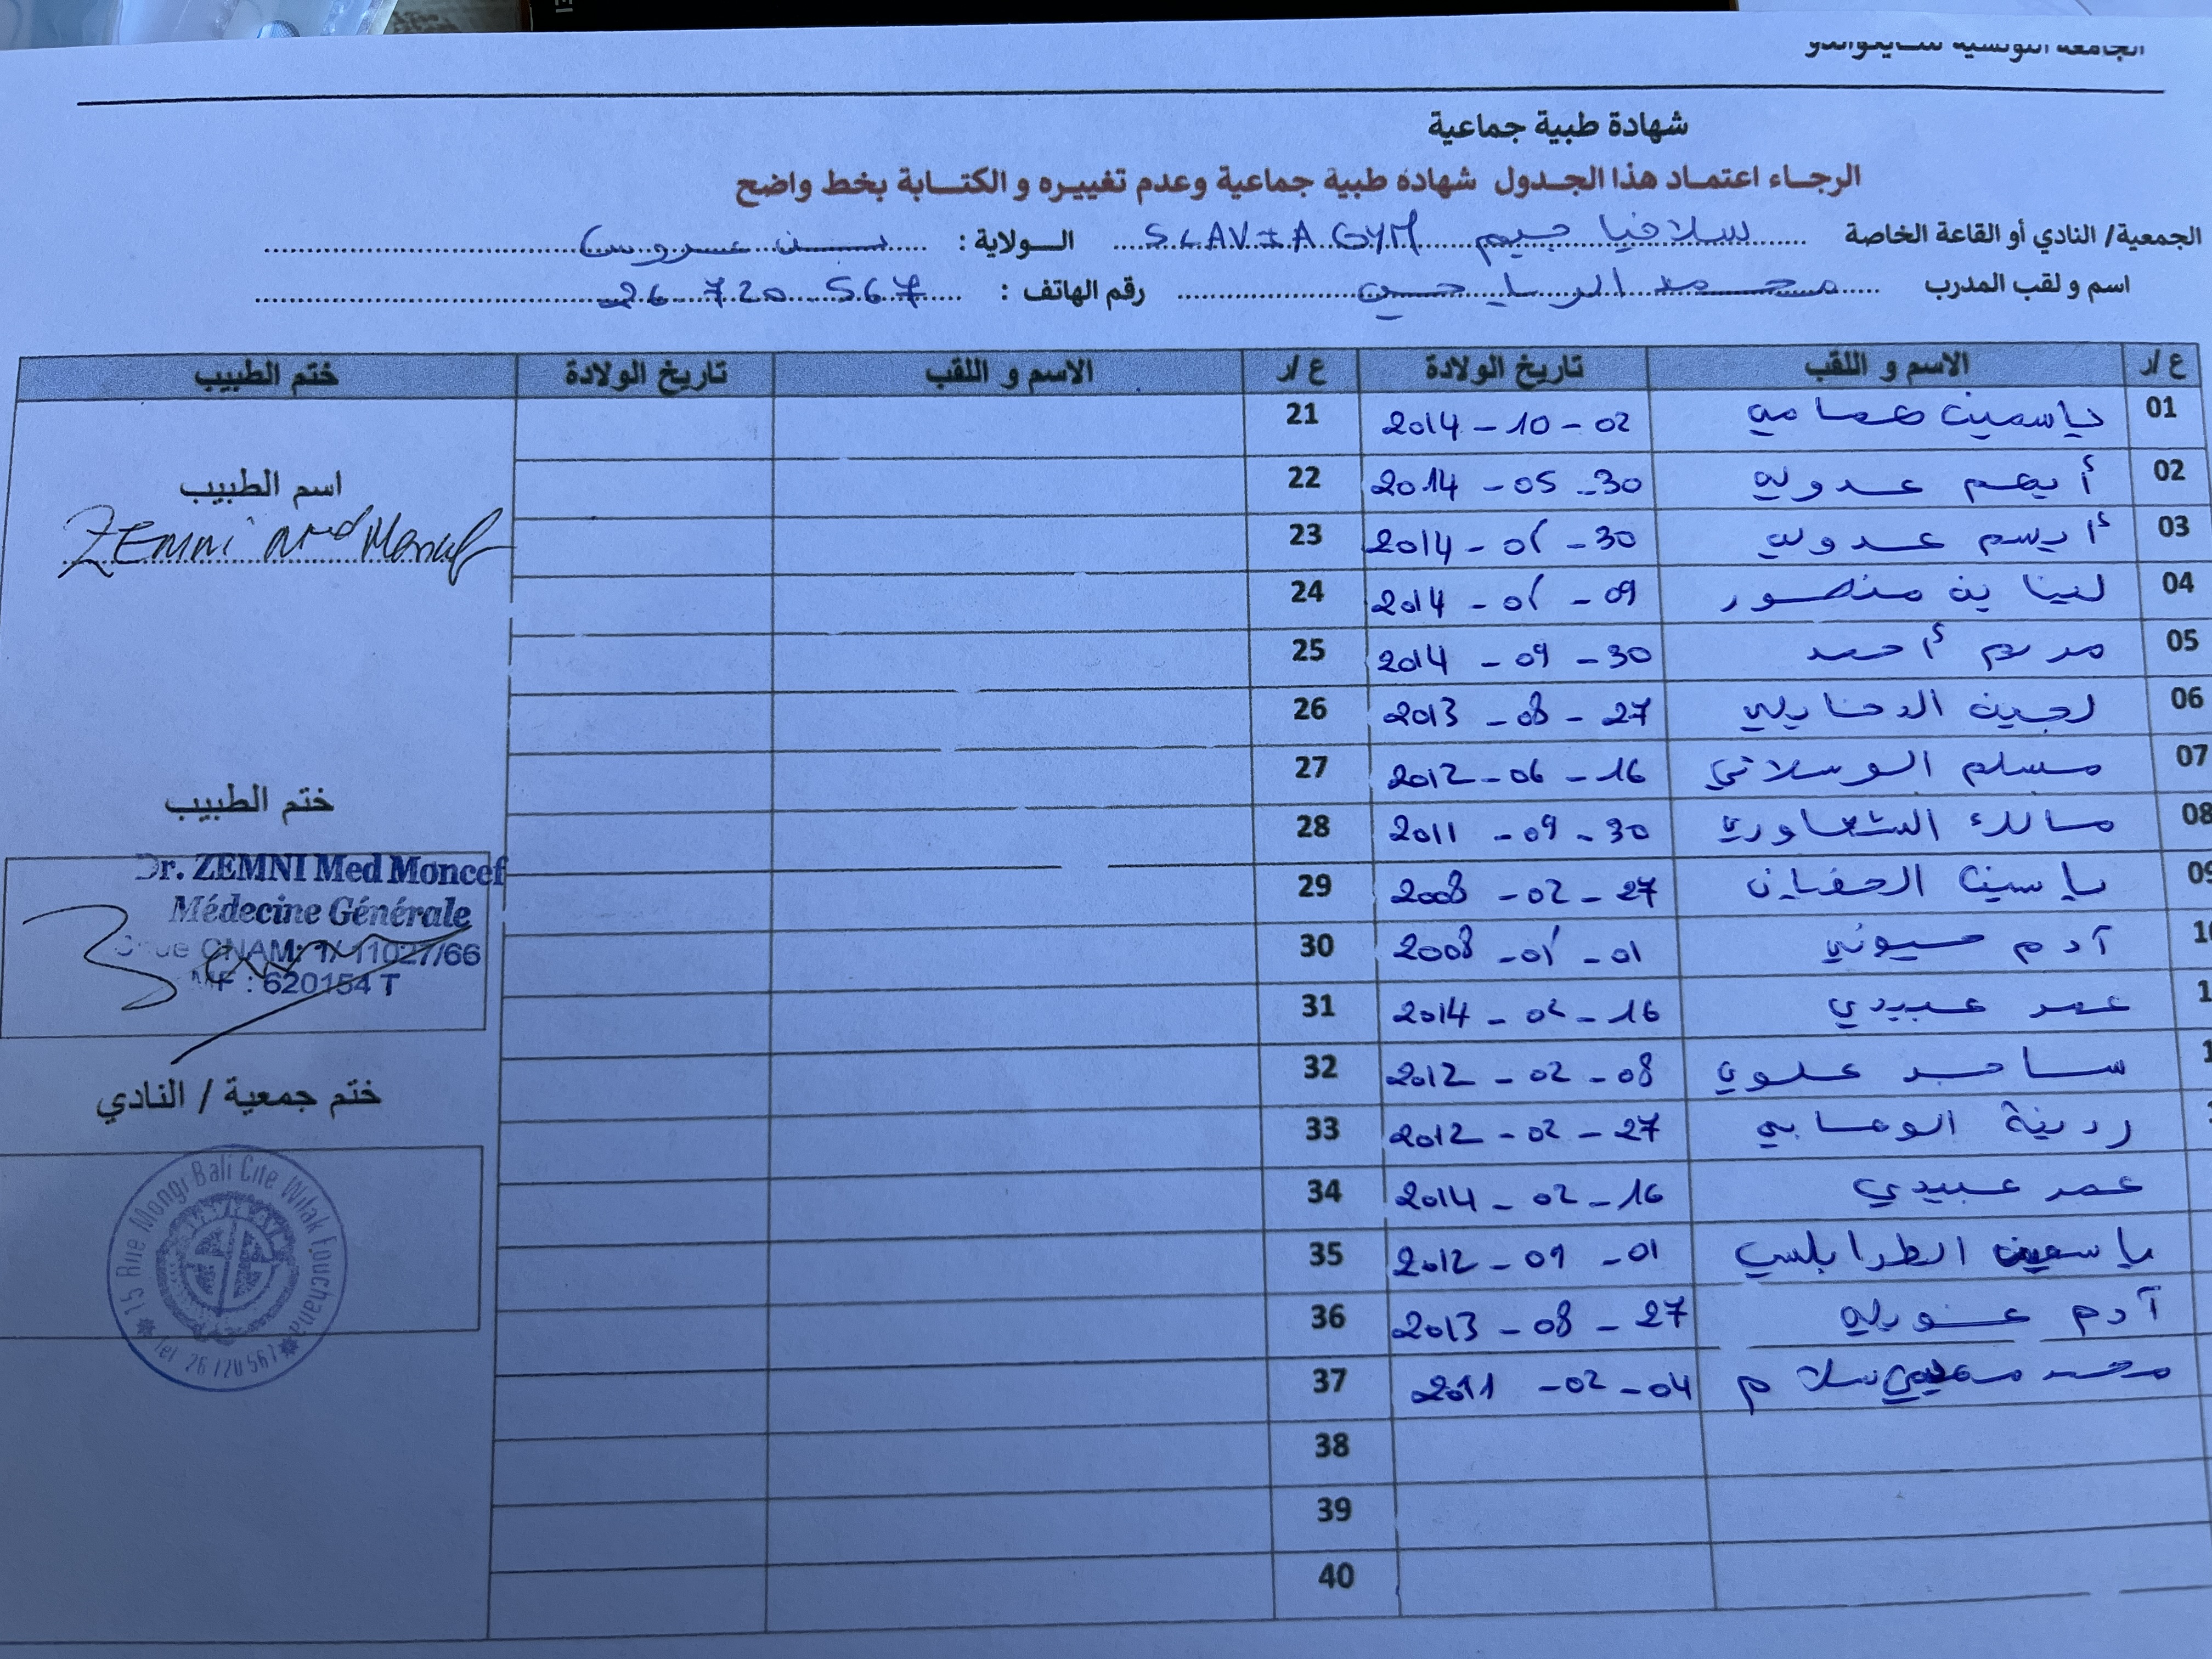 شهادة طبية جماعية
الرجاء اعتماد هذا الجدول شهادة طبية جماعية وعدم تغييره و الكتابة بخط واضح
الجمعية/ النادي أو القاعة الخاصة سلافيا جيم SLAVIA GYM الولاية : بن عروس
اسم و لقب المدرب محمد الرياحي رقم الهاتف : 26 720 567
ع /ر الاسم و اللقب تاريخ الولادة ع /ر الاسم و اللقب تاريخ الولادة ختم الطبيب
01 ياسمين همامي 2014 - 10 - 02 21
02 أيهم عدولي 2014 - 05 - 30 22
03 عدولي 2014 - 01 - 30 23
04 لينا بن منصور 2014 - 01 - 09 24
05 مريم أحمد 2014 - 09 - 30 25
06 لجين 2013 - 08 - 27 26
07 الوسلاتي 2012 - 06 - 16 27
08 مالك 2011 - 09 - 30 28
ياسين 2008 - 02 - 27 29
آدم 2008 - 01 - 01 30
عمر عبيدي 2014 - 02 - 16 31
علوي 2012 - 02 - 08 32
2012 - 02 - 27 33
عمر عبيدي 2014 - 02 - 16 34
ياسمين الطرابلسي 2012 - 09 - 01 35
آدم 2013 - 08 - 27 36
محمد سلام 2011 - 02 - 04 37
38
39
40
اسم الطبيب
ZEMNI Med Moncef
ختم الطبيب
Dr. ZEMNI Med Moncef
Médecine Générale
CNAM: 1/ 11027/66
MF : 620154 T
ختم جمعية / النادي
15 Rue Mongi Bali Cite Wifak Fouchana
Tel 26 720 567